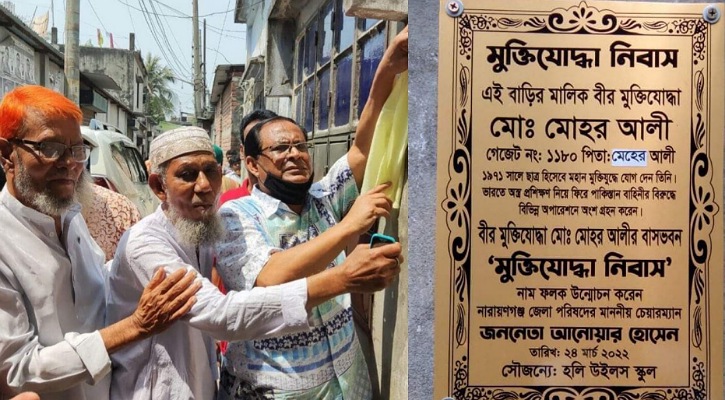 মুক্তিযোদ্ধা নিবাস
এই বাড়ির মালিক বীর মুক্তিযোদ্ধা
মোঃ মোহর আলী
গেজেট নং: ১১৮০ পিতা: মেহের আলী
১৯৭১ সালে ছাত্র হিসেবে মহান মুক্তিযুদ্ধে যোগ দেন তিনি।
ভারতে অস্ত্র প্রশিক্ষণ নিয়ে ফিরে পাকিস্তান বাহিনীর বিরুদ্ধে
বিভিন্ন অপারেশনে অংশ গ্রহন করেন।
বীর মুক্তিযোদ্ধা মোঃ মোহর আলীর বাসভবন
‘মুক্তিযোদ্ধা নিবাস’
নাম ফলক উন্মোচন করেন
নারায়ণগঞ্জ জেলা পরিষদের মাননীয় চেয়ারম্যান
জননেতা আনোয়ার হোসেন
তারিখ: ২৪ মার্চ ২০২২
সৌজন্যে: হলি উইলস স্কুল